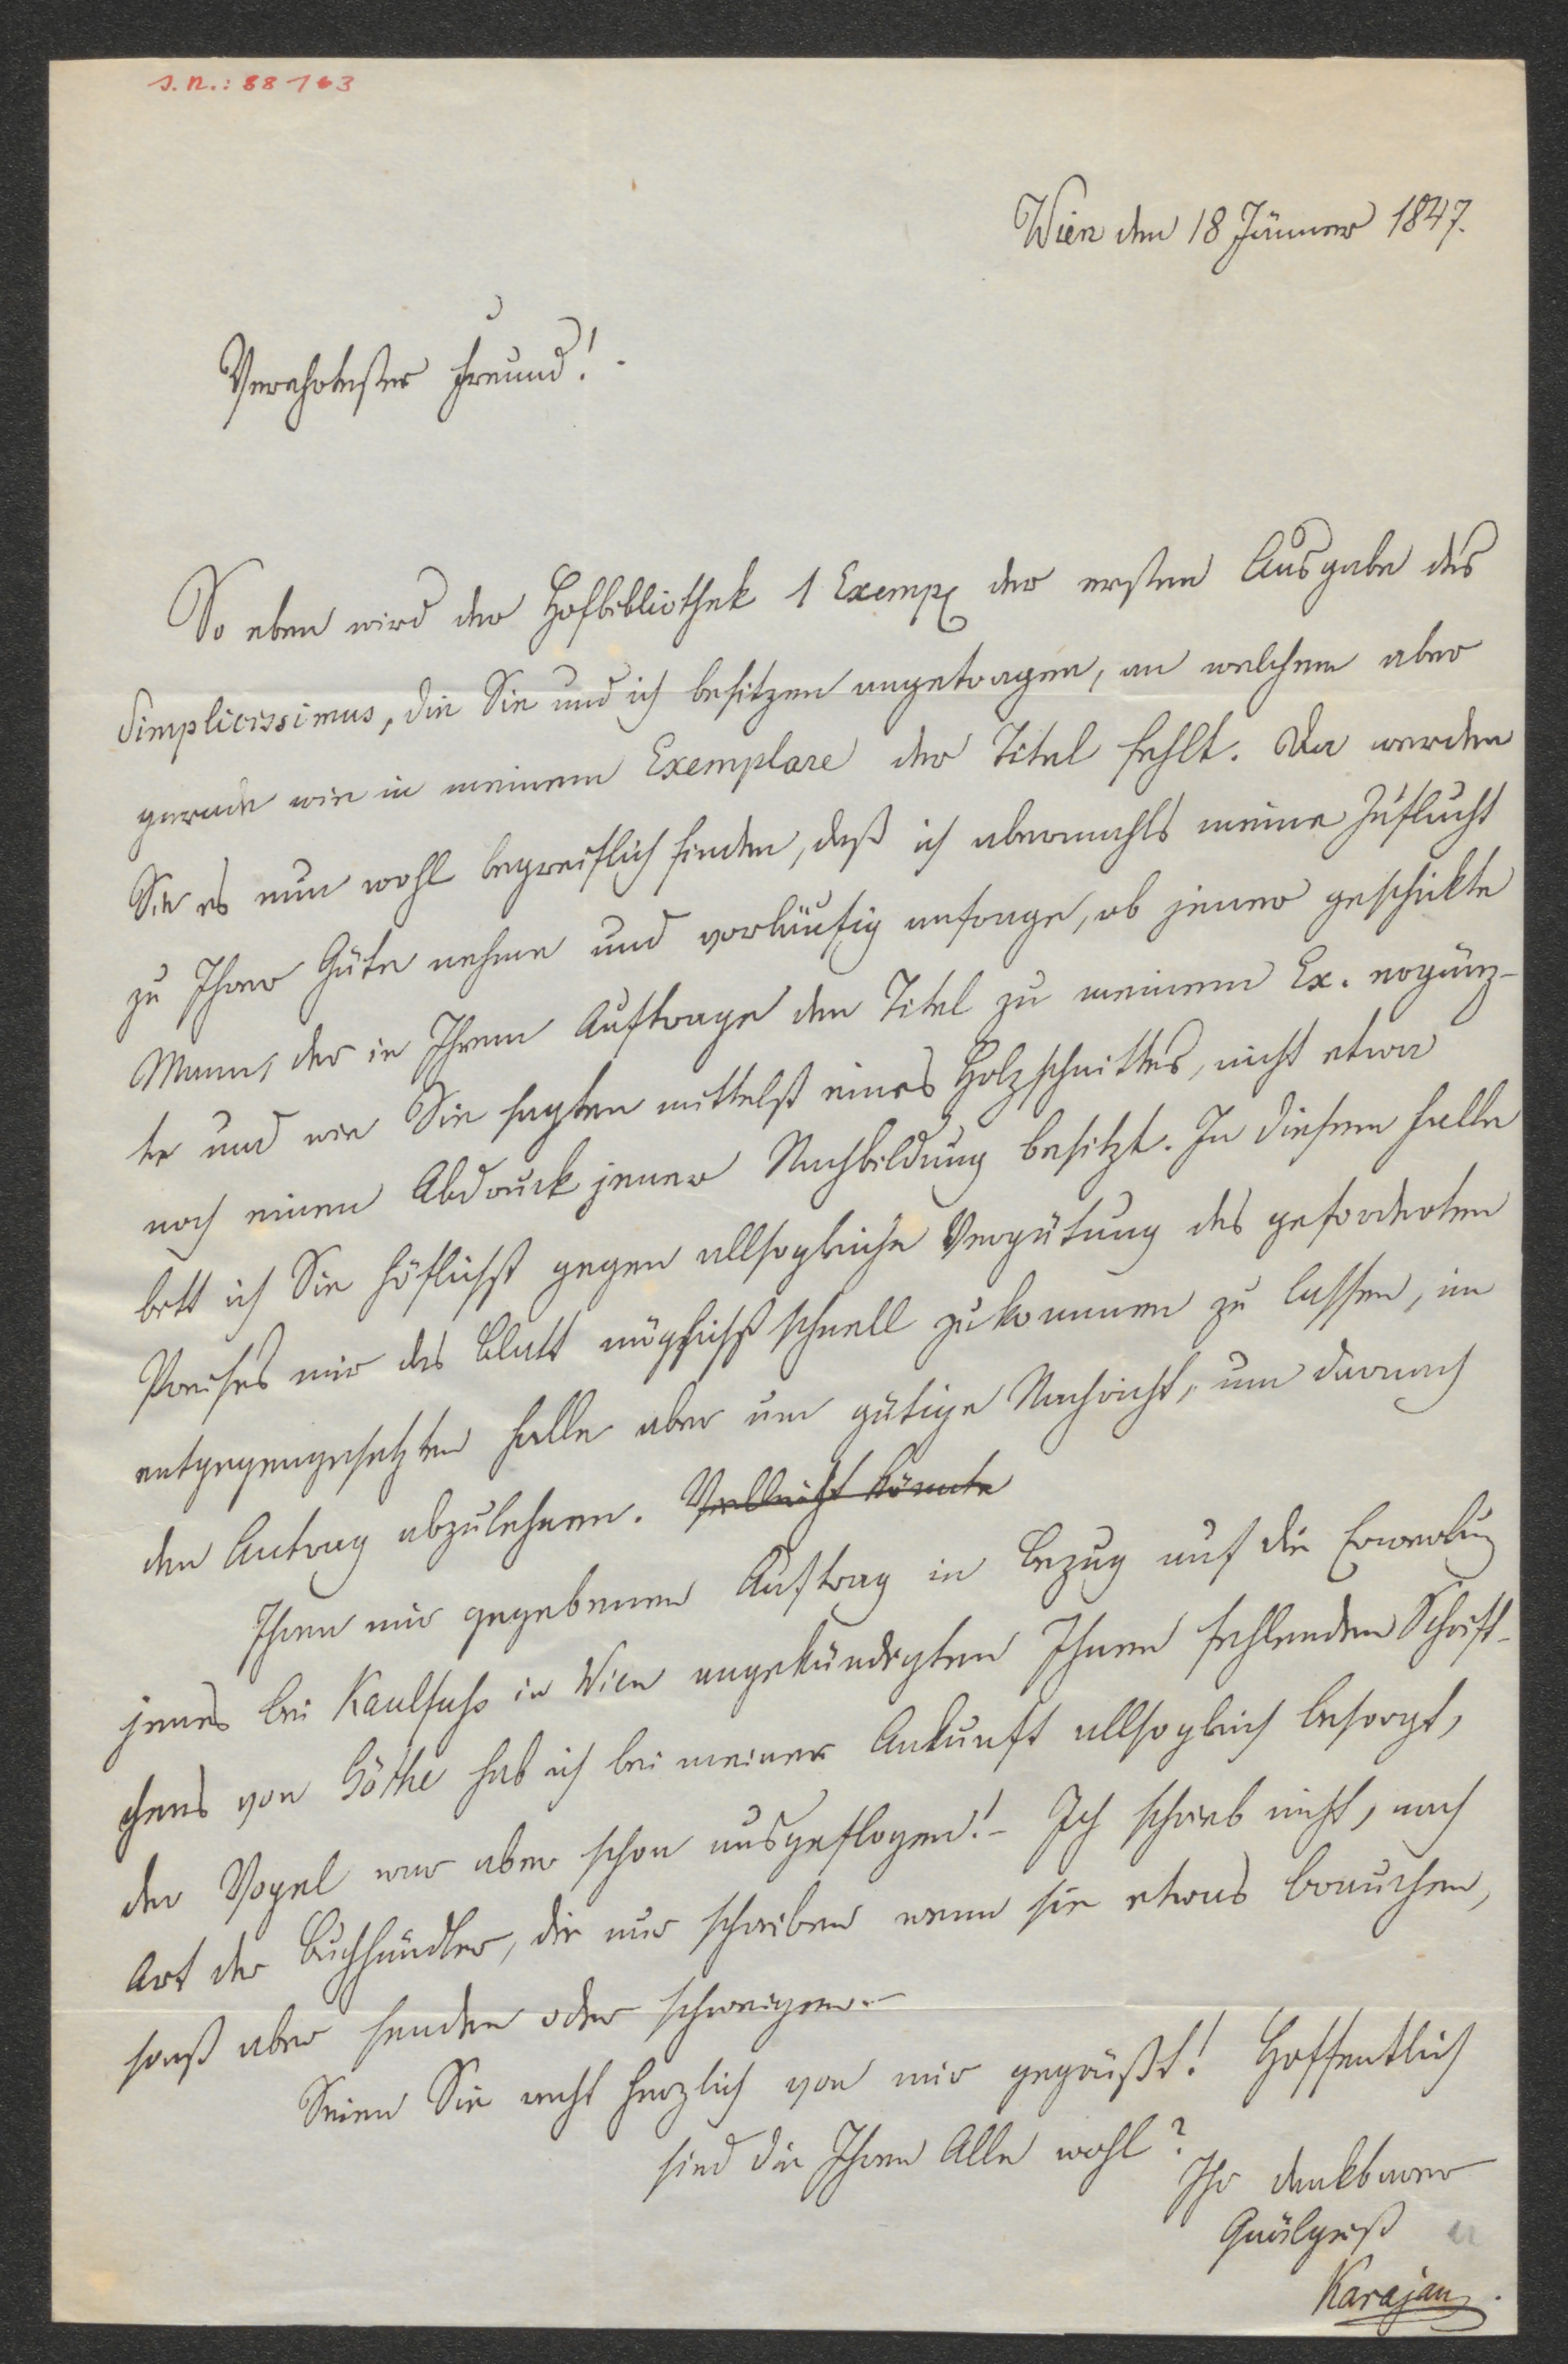 J. N.: 88163
Wien den 18 Jänner 1847.
Verehrtester Freund! -
So eben wird der Hofbibliothek 1 Exempl der ersten Ausgabe des
Simplicissimus, die Sie und ich besitzen angetragen, an welchem aber
gerade wie in meinem Exemplare der Titel fehlt. Da werden
Sie es nun wohl begreiflich finden, daß ich abermahls meine Zuflucht
zu Ihrer Güte nehme und vorläufig anfrage, ob jener geschikte
Mann, der in Ihrem Auftrage den Titel zu meinem Ex. ergänz-
te und wie Sie sagten mittelst eines Holzschnittes, nicht etwa
noch einen Abdruck jener Nachbildung besitzt. In diesem Falle
bitt ich Sie höflichst gegen allsogleiche Vergütung des geforderten
Preises mir das Blatt möglichst schnell zukommen zu lassen, im
entgegengesetzten Falle aber um gütige Nachricht, um darnach
den Antrag abzulehnen. Vielleicht könnte
Ihren mir gegebenen Auftrag in Bezug auf die Erwerbung
jenes bei Kaulfuß in Wien angekündigten Ihnen fehlenden Schrift-
chens von Göthe hab ich bei meiner Ankunft allsogleich besorgt,
der Vogel war aber schon ausgeflogen! - Ich schrieb nicht, nach
Art der Buchhändler, die nur schreiben wenn sie etwas brauchen,
sonst aber senden oder schweigen. -
Seien Sie recht herzlich von mir gegrüßt! Hoffentlich
sind die Ihren Alle wohl?
Ihr dankbarer
Quälgeist
Karajan.